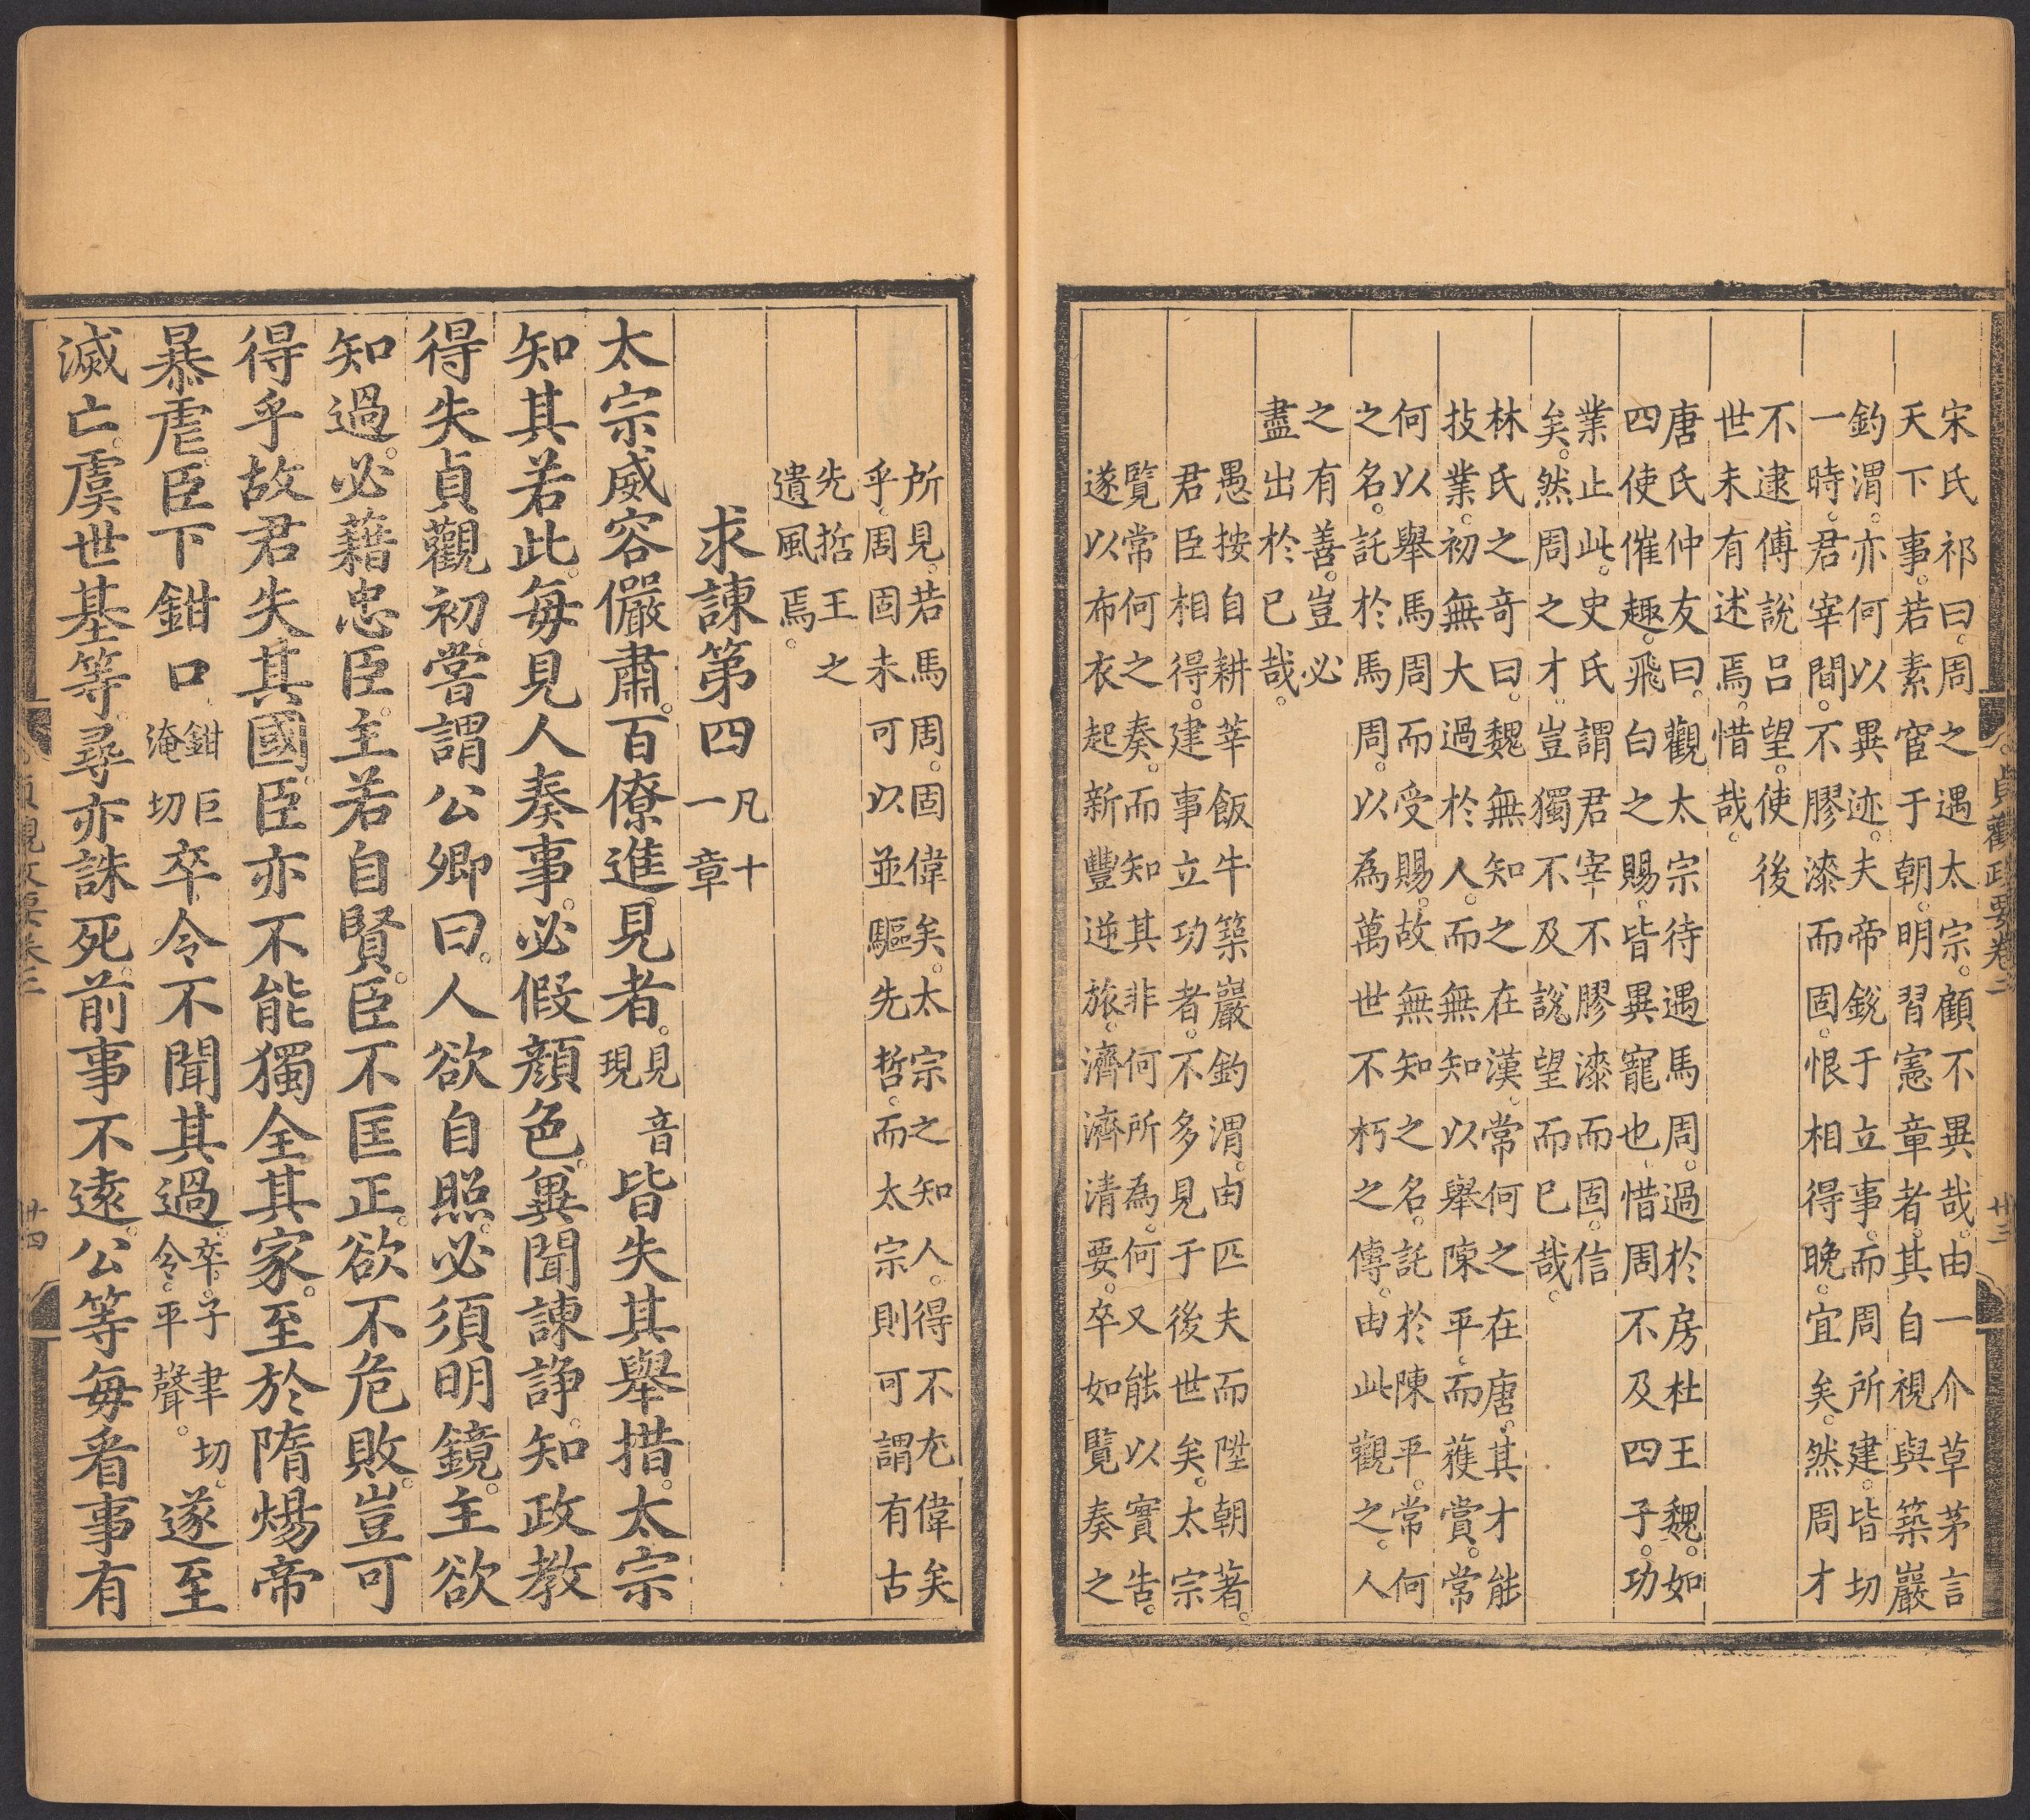 宋氏祁曰。周之遇太宗。顧不異哉。由一介草茅言
天下事。若素宦于朝。明習憲章者。其自視與築巖
釣渭。亦何以異迹。夫帝銳于立事。而周所建。皆切
一時。君宰間。不膠漆而固。恨相得晚。宜矣。然周才
不逮傅說呂望。使後
世未有述焉。惜哉。
唐氏仲友曰。觀太宗待遇馬周。過於房杜王魏。如
四使催趣。飛白之賜。皆異寵也。惜周不及四子。功
業止此。史氏謂君宰不膠漆而固。信
矣。然周之才。豈獨不及說望而已哉。
林氏之奇曰。魏無知之在漢。常何之在唐。其才能
技業。初無大過於人。而無知以舉陳平。而蒦賞。常
何以舉馬周而受賜。故無知之名。託於陳平。常何
之名。託於馬周。以為萬世不朽之傳。由此觀之。人
之有善。豈必
盡出於已哉。
愚按自耕莘飯牛築巖釣渭。由匹夫而陞朝著。
君臣相得。建事立功者。不多見于後世矣。太宗
覽常何之奏。而知其非何所為。何又能以實告。
遂以布衣起新豐逆旅。濟濟清要。卒如覽奏之
貞觀政要卷三
廿三
所見。若馬周。固偉矣。太宗之知人。得不尤偉矣
乎。周固未可以並驅先哲。而太宗則可謂有古
先哲王之
遺風焉。
求諫第四凡十一章
太宗威容儼肅。百僚進見者。見音現皆失其舉措。太宗
知其若此。每見人奏事。必假顏色。冀聞諫諍。知政教
得失貞觀初。嘗謂公卿曰。人欲自照。必須明鏡。主欲
知過。必藉忠臣。主若自賢。臣不匡正。欲不危敗。豈可
得乎故君失其國。臣亦不能獨全其家。至於隋煬帝
暴虐。臣下鉗口。鉗巨淹切卒令不聞其過。卒。子聿切。令。平聲。遂至
滅亡。虞世基等。尋亦誅死。前事不遠。公等每看事有
貞觀政要卷三
廿四